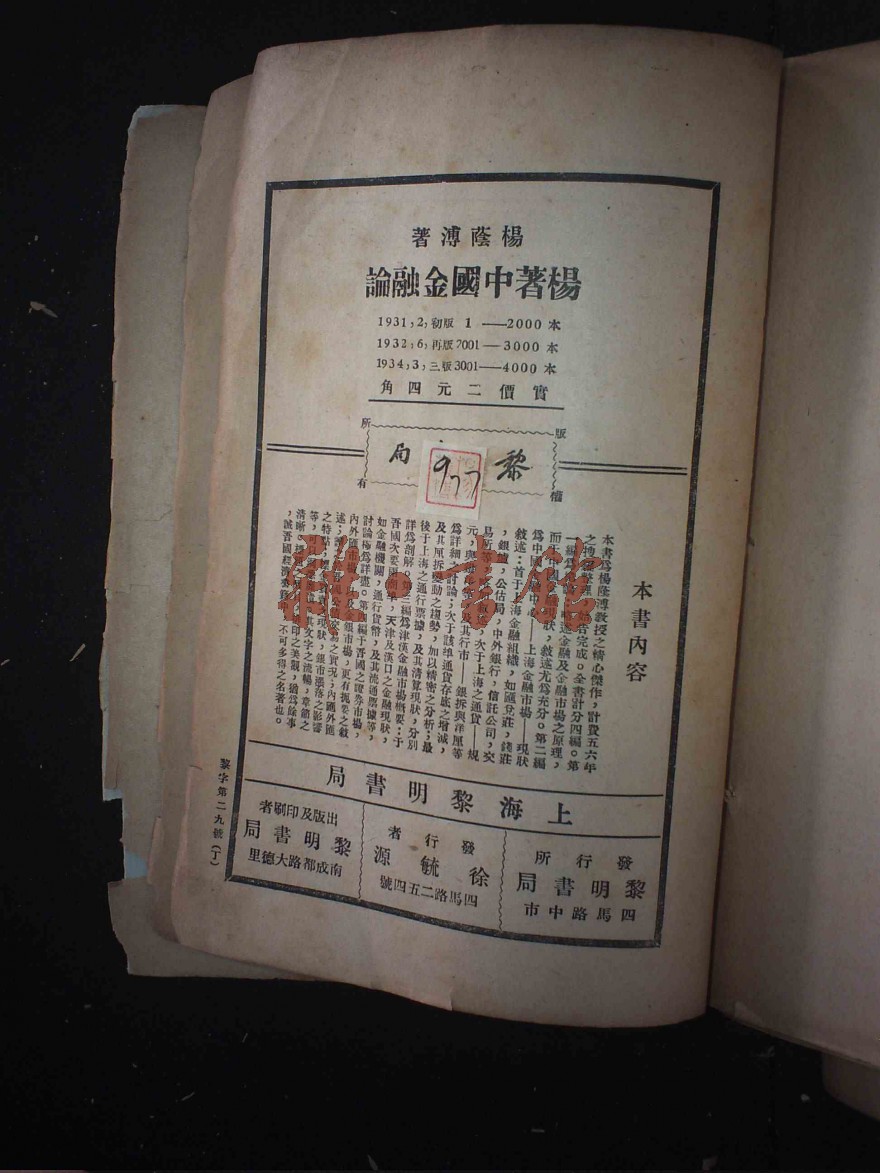 楊蔭溥著
楊著中國金融論
1931,2,初版 1——2000本
1932,6,再版2001—3000本
1934,3,三版3001—4000本
實價二元四角
版權所有
黎 局
977
本書內容
本書爲楊蔭溥教授之精心傑作,計費五六年
之搜 整理 告完成。全書計分四編。第
一編爲 論, 述金融及金融市場之原理,
而于中國 現狀,敘述尤爲充分。第二編
爲中國金融中心——上海金融市場——現狀
敘述:首于上海金融組織,如匯兌莊,錢莊
,銀爐,公估局,中外銀行,信託公司,交
易所等, 次于上海之通貨——規
元, 及其行市——銀拆與洋厘等
爲詳細之討論;次于該埠通貨存底之增減,
及其厘拆變動之趨勢,加以精密之分析;最
後于上海之通行票據,及其清算現狀,分別
詳爲剖解。第三編爲津漢金融市場概要:于
吾國次要 天津及漢口之金融現狀,
如金融機關,通行貨幣,及其流通票據等,
討論極爲詳盡。第四編于吾國之證券市場,
內外匯市場,以及金銀市場,更有扼要之敘
述: 之實況;內匯外匯
之特點; 之現狀,銀市漲落之影響
等, 其文字之流暢,章節之
清晰, 印之美觀,猶爲餘事
,誠吾國經濟 不可多得之名著也。
上海黎明書局
發行所
黎明書局
四馬路中市
發行者
徐毓源
四馬路二五四號
出版及印刷者
黎明書局
南成都路大德里
黎字第二九號(丁)